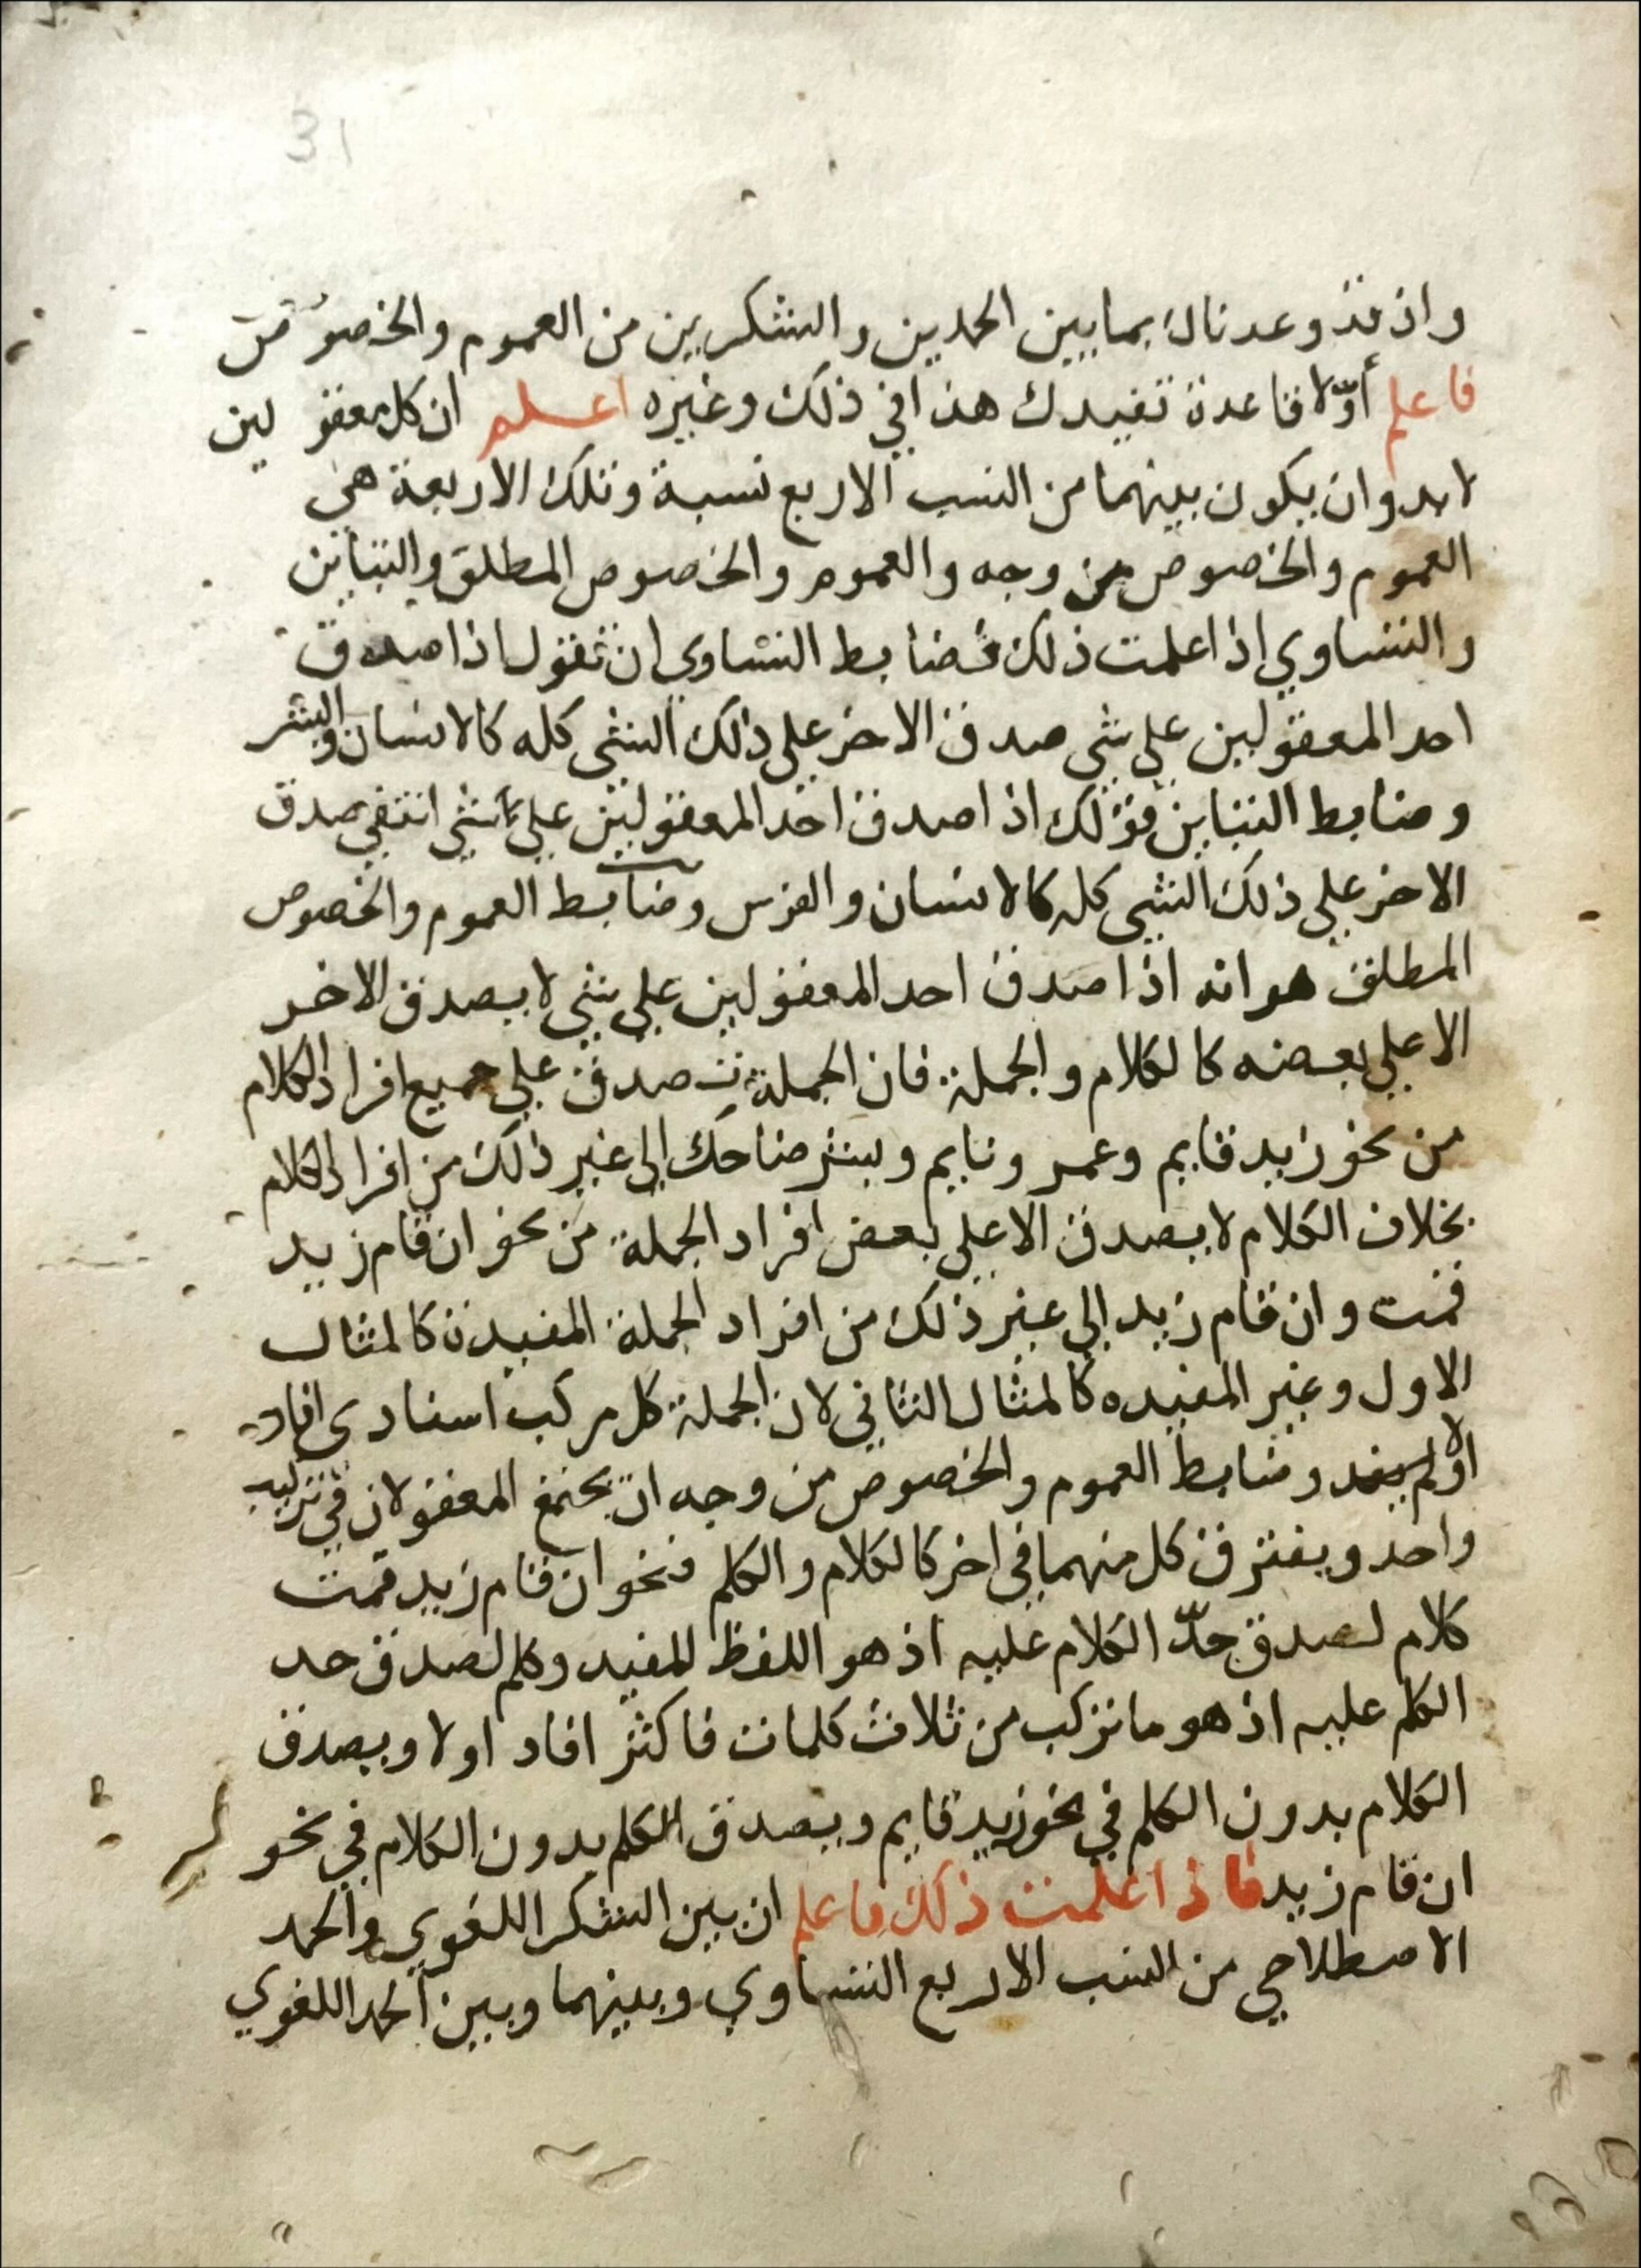 31
واذ قد وعدناك بما بين الحمدين والشكرين من العموم والخصوص
فاعلم أوّلا قاعدة تفيدك هذا في ذلك وغيره اعلم ان كل معقولين
لا بد وان يكون بينهما من النسب الاربع نسبة وتلك الاربعة هي
العموم والخصوص من وجه والعموم والخصوص المطلق والتباين
والتساوي اذا علمت ذلك فضابط التساوي ان تقول اذا صدق
احد المعقولين علي شي صدق الاخر علي ذلك الشي كله كالانسان والبشر
وضابط التباين قولك اذا صدق احد المعقولين علي شي انتفي صدق
الاخر علي ذلك الشي كله كالانسان والفرس وضابط العموم والخصوص
المطلق هو انه اذا صدق احد المعقولين علي شي لا يصدق الاخر
الا علي بعضه كالكلام والجملة فان الجملة تصدق علي جميع افراد الكلام
من نحو زيد قايم وعمرو نايم وبشر ضاحك الي غير ذلك من افراد الكلام
بخلاف الكلام لا يصدق الا علي بعض افراد الجملة من نحو ان قام زيد
قمت وان قام زيد الي غير ذلك من افراد الجملة المفيدة كالمثال
الاول وغير المفيده كالمثال الثاني لان الجملة كل مركب اسنادي افاد
او لم يفد وضابط العموم والخصوص من وجه ان يجتمع المعقولان في تركيب
واحد ويفترق كل منهما في اخر كالكلام والكلم فنحو ان قام زيد قمت
كلام لصدق حدّ الكلام عليه اذ هو اللفظ المفيد وكلم لصدق حد
الكلم عليه اذ هو ما تركب من ثلاث كلمات فاكثر افاد اولا ويصدق
الكلام بدون الكلم في نحو زيد قايم ويصدق الكلم بدون الكلام في نحو
ان قام زيد فاذا علمت ذلك فاعلم ان بين الشكر اللغوي والحمد
الاصطلاحي من النسب الاربع التساوي وبينهما وبين الحمد اللغوي